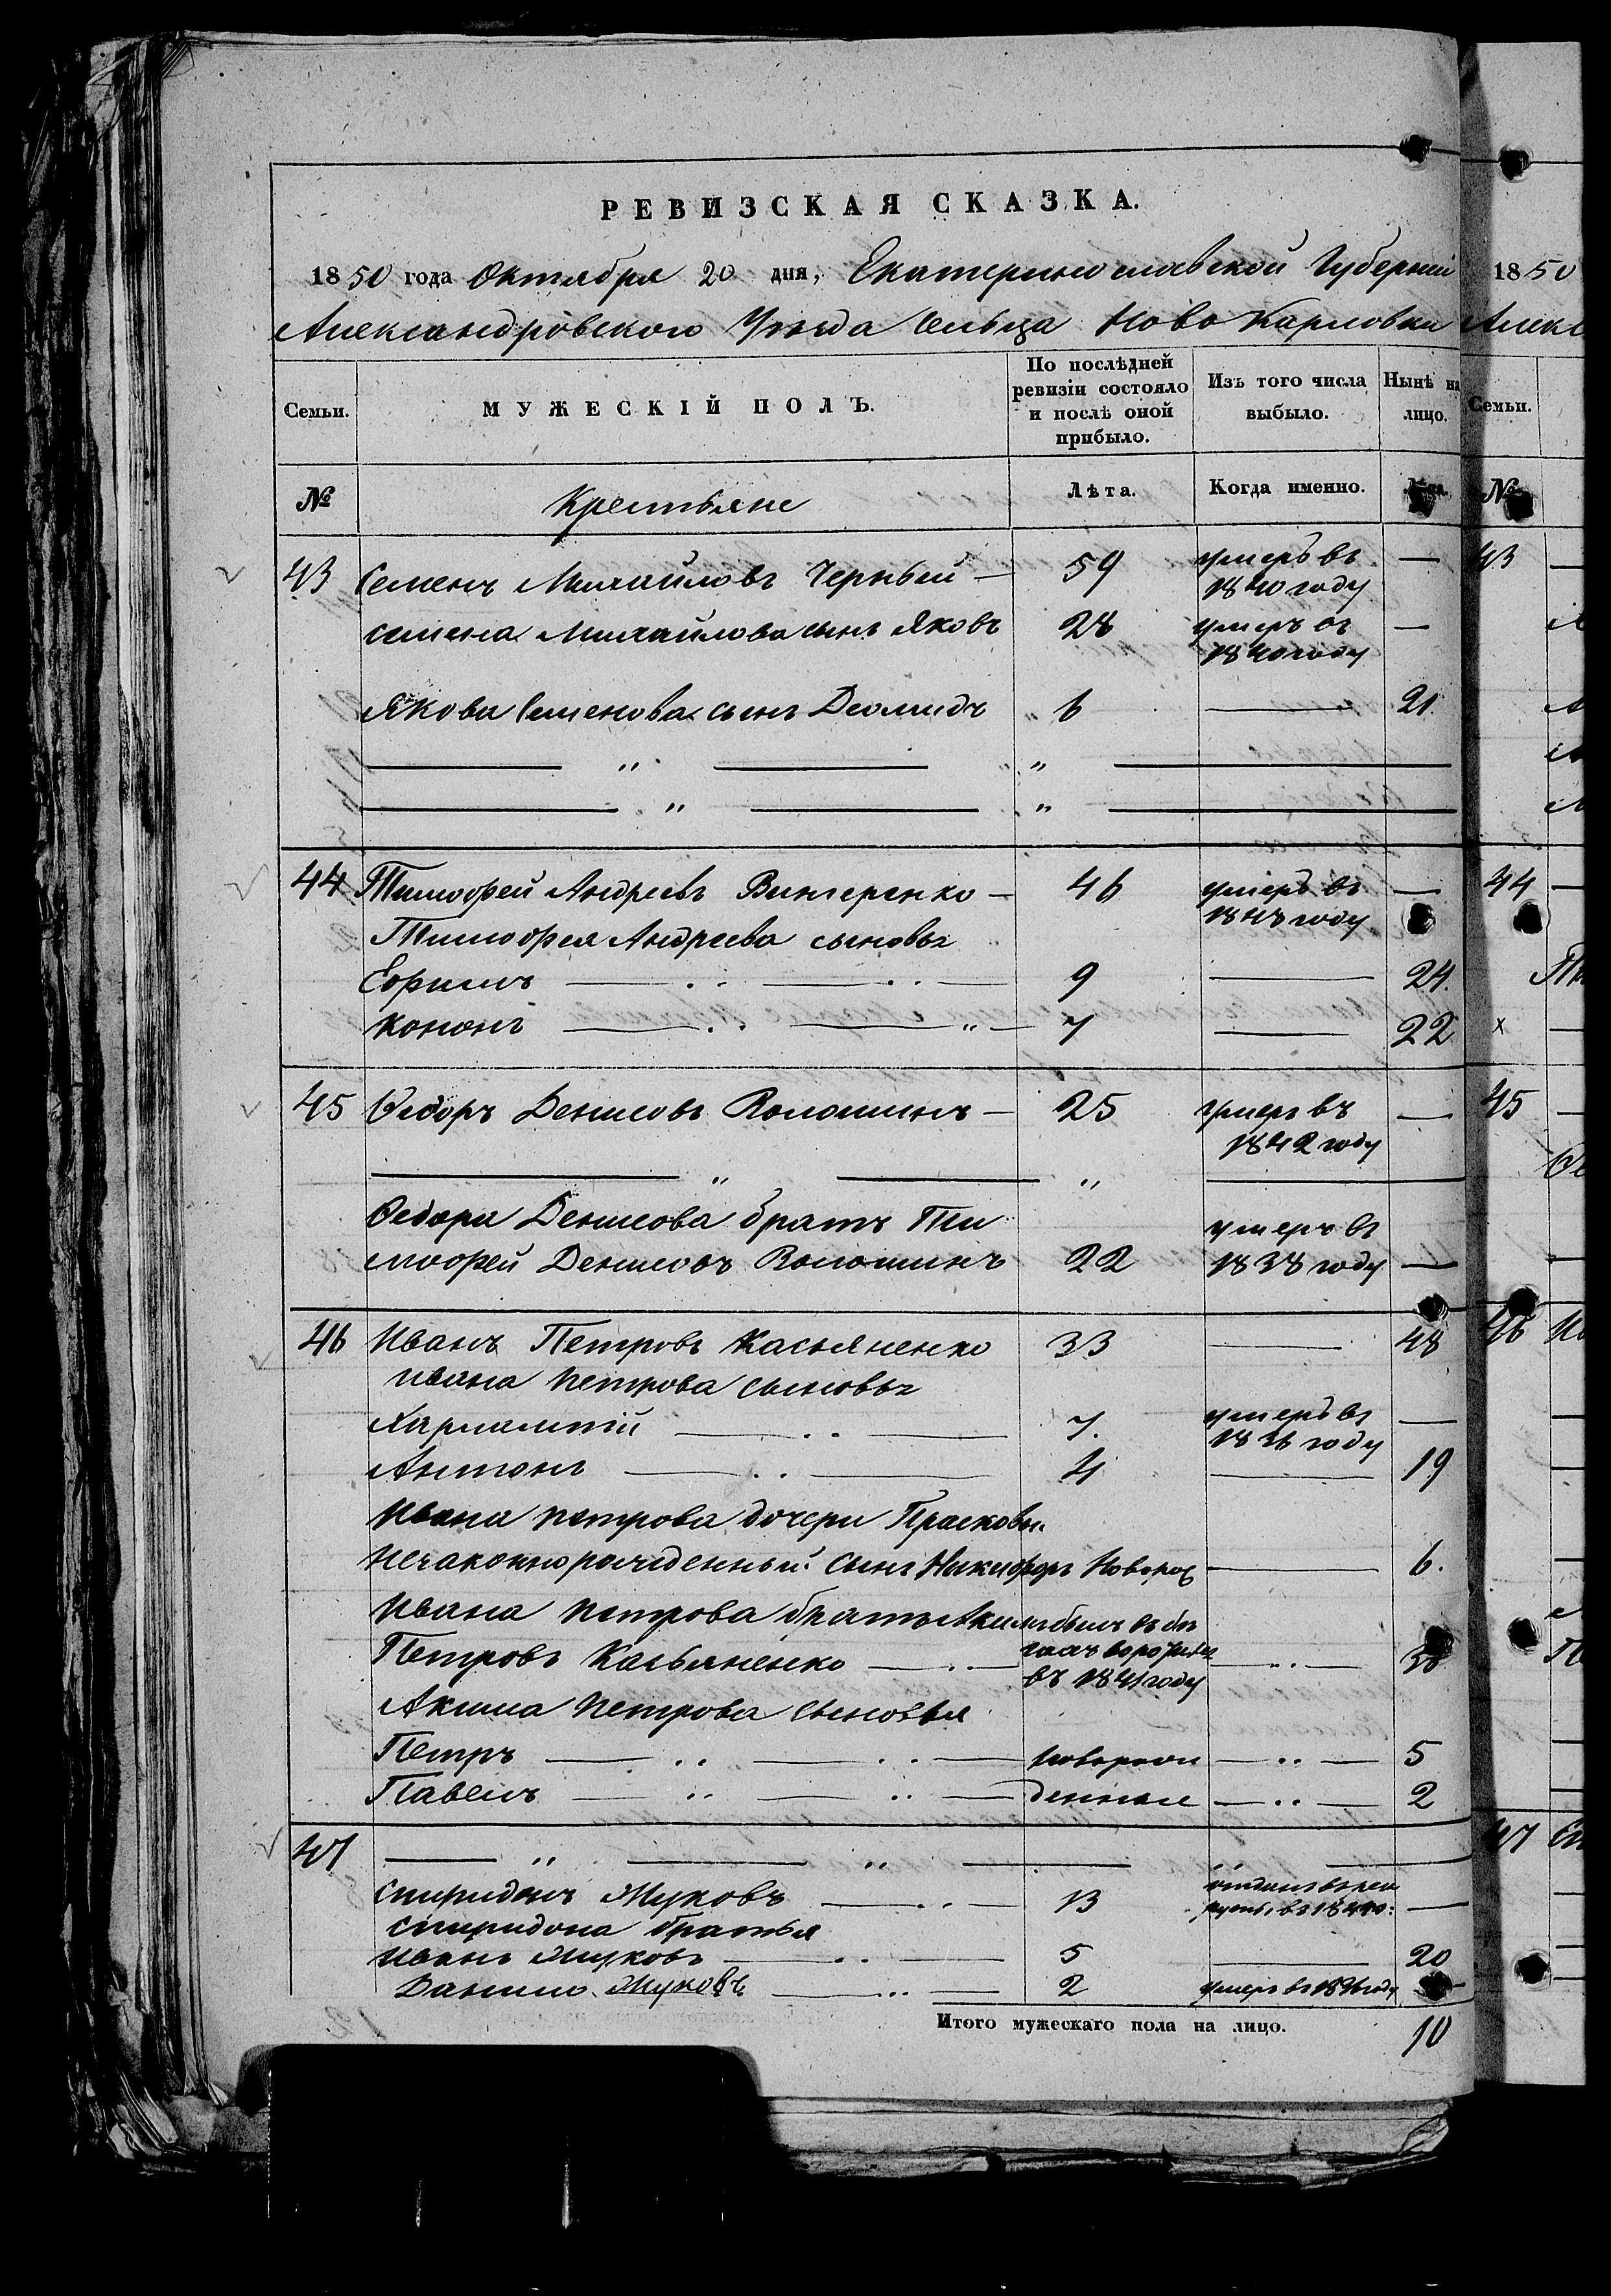 РЕВИЗСКАЯ СКАЗКА.
1850 года Октября 20 дня, Екатеринославской Губерніи
Александровского Уѣзда Сельца Ново Карловки
Семьи.
МУЖЕСКІЙ ПОЛЪ.
По послѣдней ревизіи состояло и послѣ оной прибыло.
Изъ того числа выбыло.
Нынѣ на лицо.
№ Крестьяне Лѣта. Когда именно.
43 Семенъ Михайловъ Черный — 59 умеръ въ 1840 году —
Семена Михайлова сынъ Яковъ 28 умеръ въ 1840 году —
Якова Семенова сынъ Деомидъ 6 — 21.
— " — " —
— " — " —
44 Тимофей Андреевъ Винчеренко — 46 умеръ въ году —
Тимофея Андреева сыновья
Ефимъ — 9 — 24.
Кононъ — 7 — 22
45 Федоръ Денисовъ Волошинъ — 25 умеръ въ 1842 году —
— " — " —
Федора Денисова братъ Ти
мофей Денисовъ Волошинъ 22 умеръ въ 1838 году —
46 Иванъ Петровъ Касьяненко 33 — 48
Ивана Петрова сыновья
Харлампій — 7. умеръ въ году —
Антонъ — 4 — 19
Ивана Петрова дочери Прасковьи
незаконнорожденный сынъ НикифоръНоворож — 6.
Ивана Петрова братъ Акимъ былъ въ бѣ
Петровъ Касьяненко — гахъ воротился въ 1841 году — 38
Акима Петрова сыновья
Петръ — новорож — 5
Павелъ — денные — 2
47 — " — " — " —
Спиридонъ Жуковъ — 13 отданъ въ рек руты въ —
Спиридона братья
Иванъ Жуковъ — 5 — 20
Данило Жуковъ — 2 умеръ въ году —
Итого мужескаго пола на лицо. 10
1850
Алекс
Семьи.
№
43
44
Ти
x
45
Фе
46 Ив
47 Сп